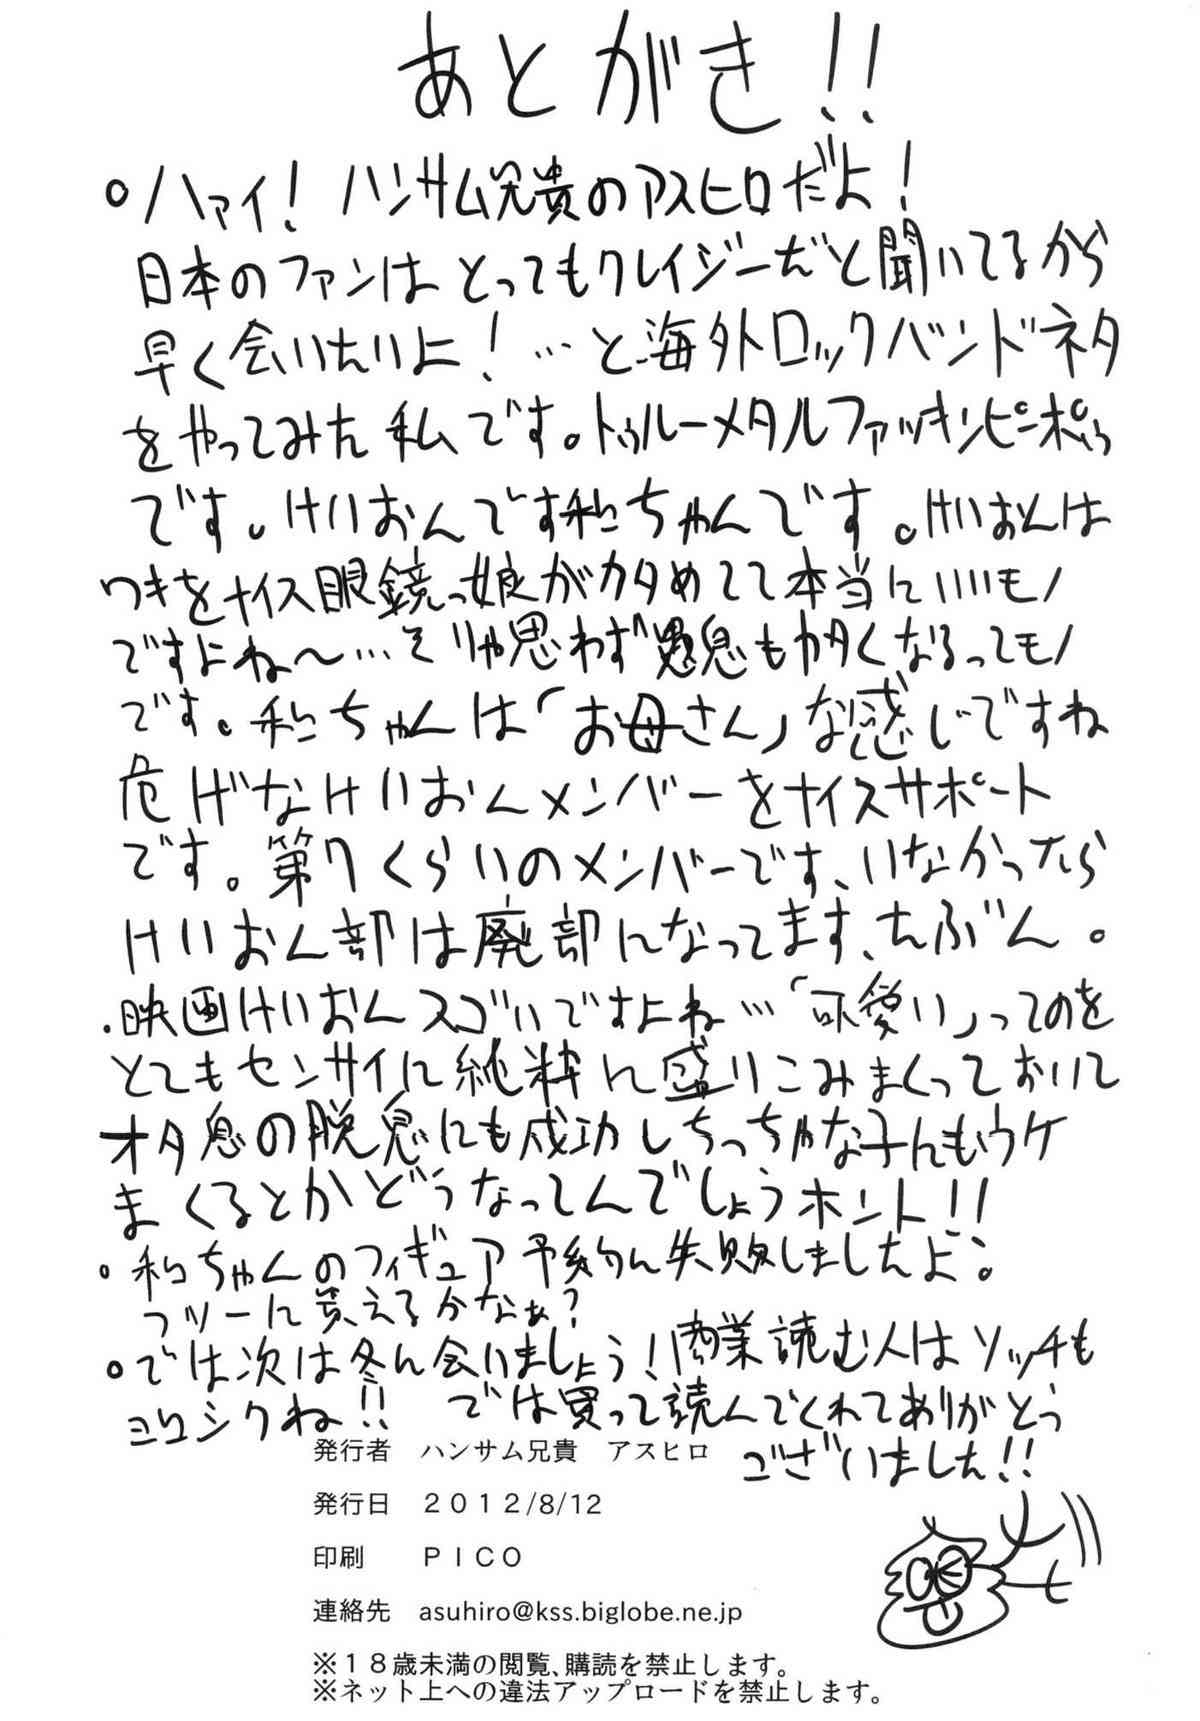 あとがき!!
○ハァイ!ハンサム兄貴のアスヒロだよ!
日本のファンはとってもクレイジーだと聞いてるから
早く会いたいよ!…と海外ロックバンドネタ
をやってみた私です。トゥルーメタルファッキンピーポゥ
です。けいおんです和ちゃんです。けいおんは
ワキをナイス眼鏡っ娘がカタめてて本当にいいモノ
ですよね〜…そりゃ思わず愚息もカタくなるってモノ
です。和ちゃんは「お母さん」な感じですね
危げなけいおんメンバーをナイスサポート
です。第7くらいのメンバーです、いなかったら
けいおん部は廃部になってます、たぶん。
・映画けいおんスゴいですよね…「可愛い」ってのを
とてもセンサイに純粋に盛りこみまくっておいて
オタ息の脱息にも成功しちっちゃな子にもウケ
まくるとかどうなってんでしょうホント!!
○和ちゃんのフィギュア予約に失敗しましたよ。
フツーに買えるかなぁ?
○では次は冬に会いましょう!商業読む人はソッチも
ヨロシクね!!では買って読んでくれてありがとう
ございました!!
発行者 ハンサム兄貴 アスヒロ
発行日 2012/8/12
印刷 PICO
連絡先 asuhiro@kss.biglobe.ne.jp
※18歳未満の閲覧、購読を禁止します。
※ネット上への違法アップロードを禁止します。